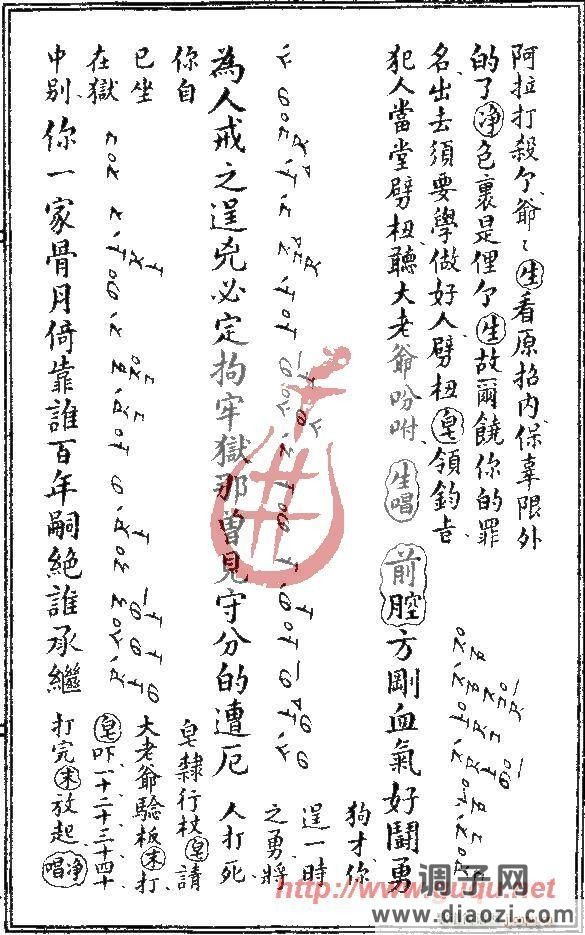 阿拉打殺个爺〻生看原招内保辜限外
的了淨色裏是俚个生故爾饒你的罪
名出去須要學做好人劈杻皂領鈞旨
犯人當堂劈杻聽大老爺吩咐生唱前腔方剛血氣好鬪勇
狗才你
逞一時
之勇將
人打死
為人戒之逞兇必定拘牢獄那曾見守分的遭厄
皂隸行杖皂請
你自
已坐
在獄
中别
大老爺驗板末打
皂吓一十二十三十四十
你一家骨月倚靠誰百年嗣絶誰承繼
打完末放起淨唱
http://www.guqu.net
调子网
www.diaozi.com